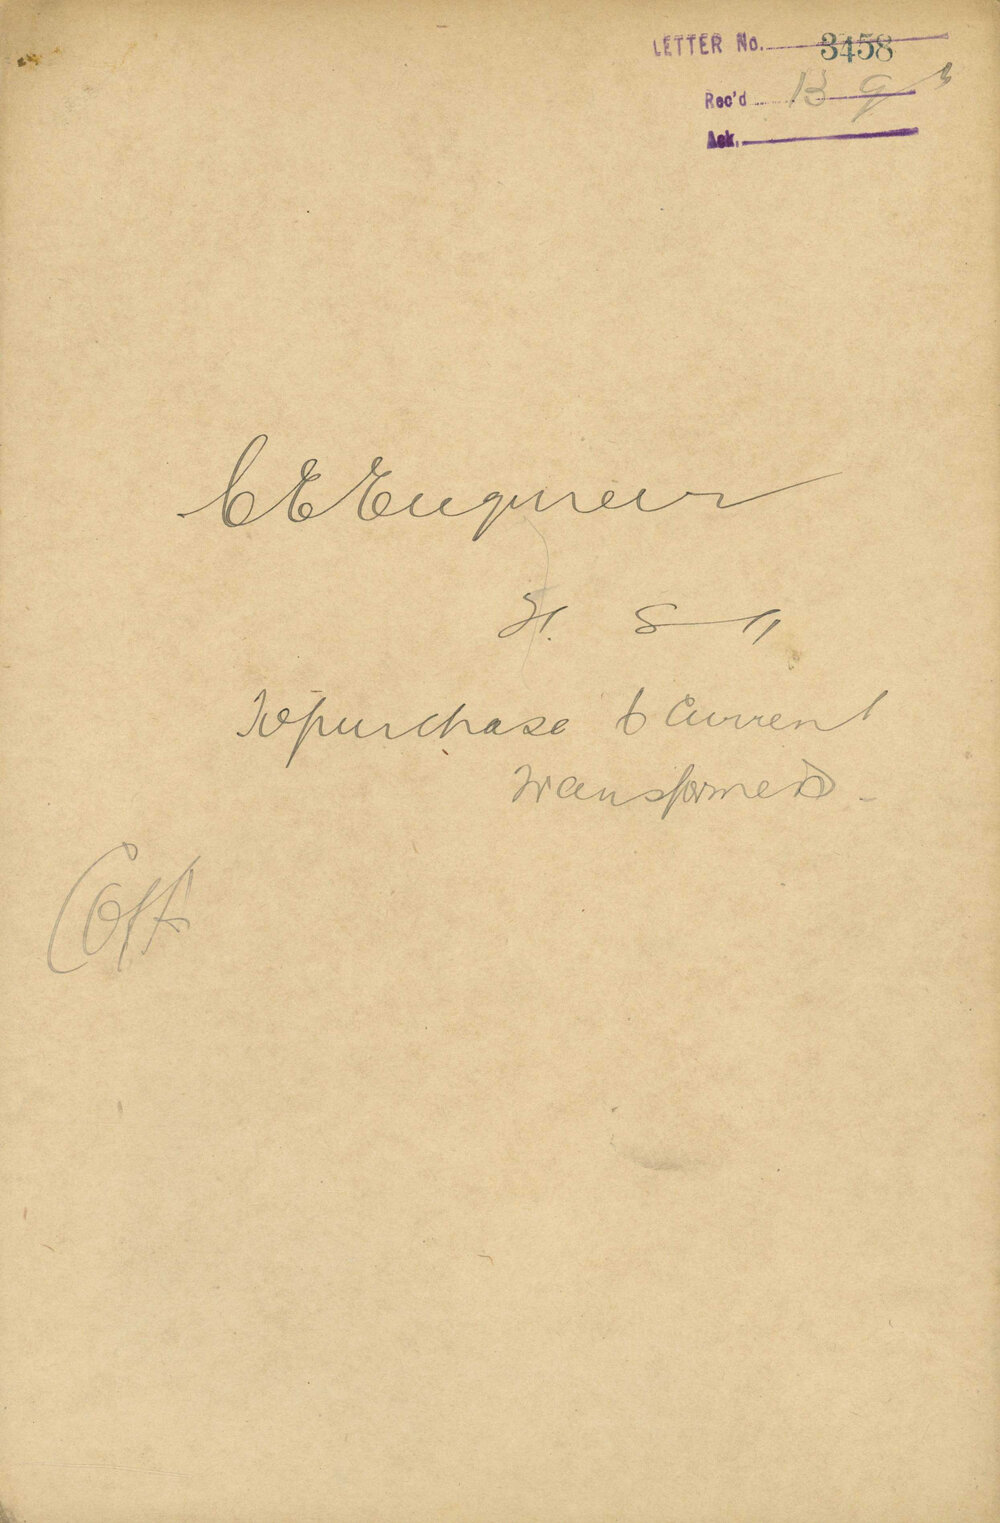 LETTER No. 3458
Rec'd 13 9
Ack.
C E Engineer
Re purchase 6 Current
Transformers